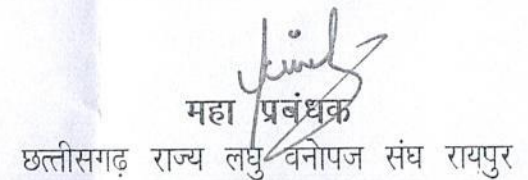 महा प्रबंधक
छत्तीसगढ़ राज्य लघु वनोपज संघ रायपुर